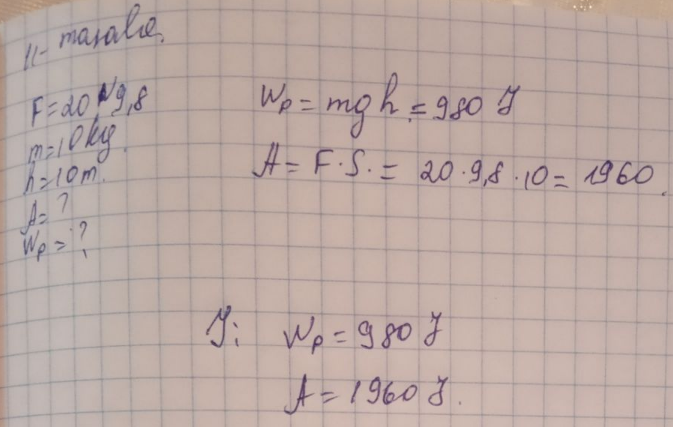 11- masala.
F=20 N 9,8
m=10kg.
h=10m.
A=?
Wp=?
Wp = mgh = 980 J
A = F·S. = 20·9,8·10 = 1960.
J: Wp = 980 J
A = 1960 J.